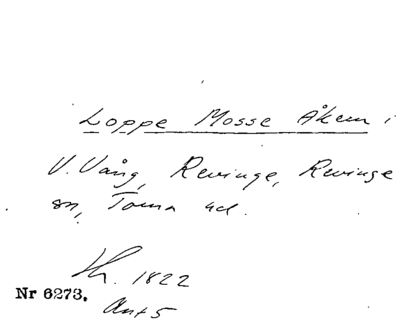 Loppe Mosse Åkern i
V. Vång, Revinge, Revinge
sn, Torna hd.
Th. 1822
Nr 6273.
Ant 5